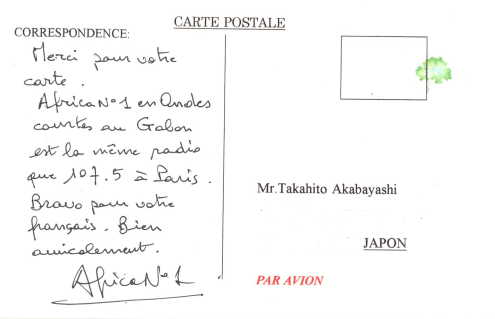 CARTE POSTALE
CORRESPONDENCE:
Merci pour votre
carte.
Africa N°1 en Ondes
courtes au Gabon
est la même radio
que 107.5 à Paris.
Bravo pour votre
français. Bien
amicalement.
Africa N°1
Mr.Takahito Akabayashi
JAPON
PAR AVION